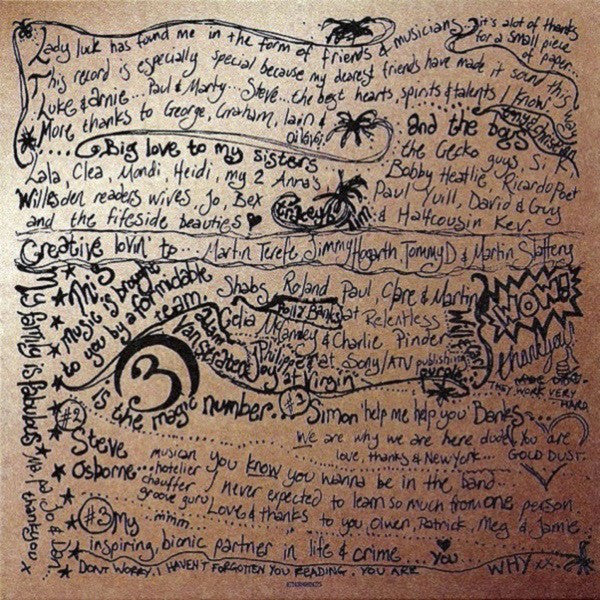 Lady luck has found me in the form of friends & musicians...
it's alot of thanks
for a small piece
of paper...
This record is especially special because my dearest friends have made it sound this
way
Luke & arnie... Paul & Marty... Steve... the best hearts, spirits & talents I know!
More thanks to George, Graham, Iain &
Big love to my sisters
Lala, Clea, Mondi, Heidi, my 2 Anna's
Willesden readers wives.. Jo, Bex
and the fireside beauties
and the boys
the Gecko guys, Si K
Bobby Heatlie, Ricardo Poet
Paul Yuill, David & Guy
& Halfcousin Kev.
Creative lovin' to... Martin Terefe, Jimmy Hogarth, Tommy D & Martin Slattery
My family is fabulous
Ma, pa, Jo & Dan.
thankyou x
This
music is brought
to you by a formidable
team.
3
is the magic number...
Shabs Roland Paul, Clare & Martin
Polly Banks at Relentless
Celia McCamley & Charlie Pinder
at Sony/ATV publishing
Adam
Van Straten
Joy at Virgin
WOW!
thankyou!
THEY WORK VERY
HARD
#1
Simon 'help me help you' Banks
We are why we are here dude. You are
love, thanks & New York...
GOLD DUST.
#2
Steve
Osborne...
musican
hotelier
chauffer
groove guru
mmm..
you know you wanna be in the band
I never expected to learn so much from one person
Love & thanks to you, Owen, Patrick, Meg & Jamie
#3 My
inspiring, bionic partner in life & crime...
you
DONT WORRY. I HAVEN'T FORGOTTEN YOU READING. YOU ARE WHY xx.